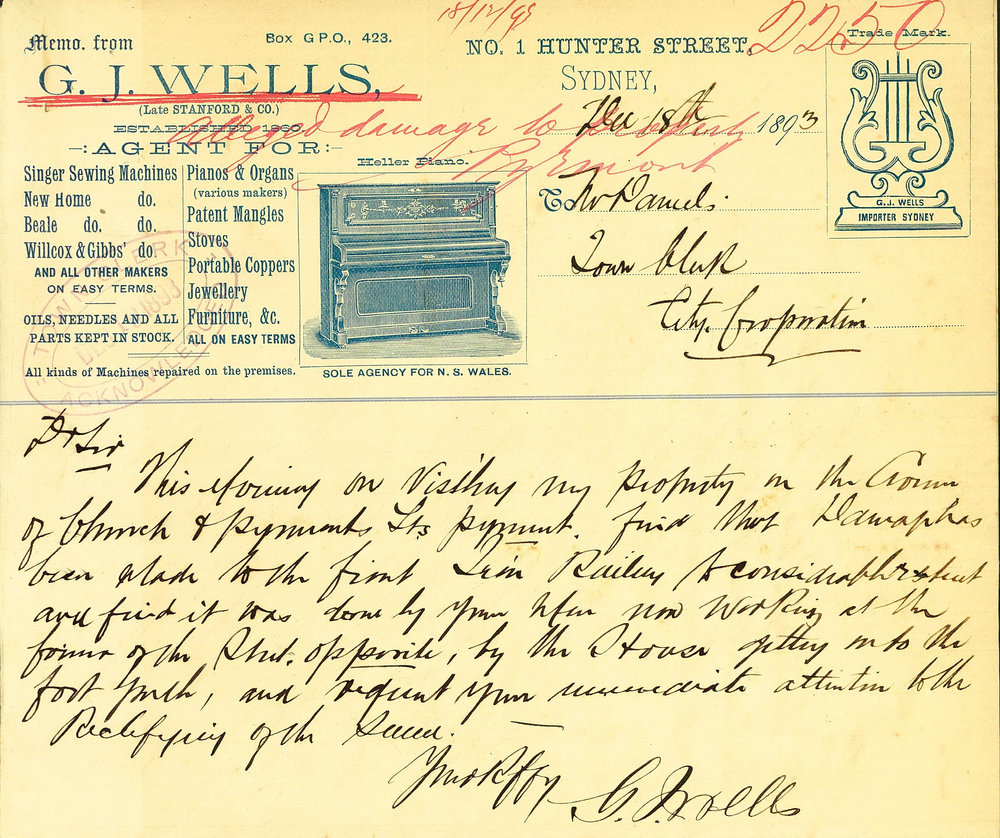 18/12/93
2250
Memo. from
Box G P.O., 423.
NO. 1 HUNTER STREET,
Trade Mark.
G. J. WELLS,
SYDNEY,
(Late STANFORD & CO.)
ESTABLISHED 1860.
Alleged damage to property
Pyrmont
Dec 18th 1893
-: AGENT FOR:-
Singer Sewing Machines
New Home do.
Beale do. do.
Willcox & Gibbs' do.
AND ALL OTHER MAKERS
ON EASY TERMS.
OILS, NEEDLES AND ALL
PARTS KEPT IN STOCK.
Pianos & Organs
(various makers)
Patent Mangles
Stoves
Portable Coppers
Jewellery
Furniture, &c.
ALL ON EASY TERMS
All kinds of Machines repaired on the premises.
TOWN CLERK
1893
ACKNOWLEDGED
Heller Piano.
SOLE AGENCY FOR N. S. WALES.
To Mr Daniels
Town Clerk
City Corporation
G.J. WELLS
IMPORTER SYDNEY
Dr Sir
This Morning on Visiting my property on the Corner
of Church & Pyrmont Sts Pyrmont. find that Damage has
been Made to the front Iron Railing to considerable extent
and find it was done by your Men now Working at the
forma of the Street opposite, by the Horse getting on to the
foot path, and request your immediate attention to the
Rectifying of the Same.
Yours
G. J. Wells